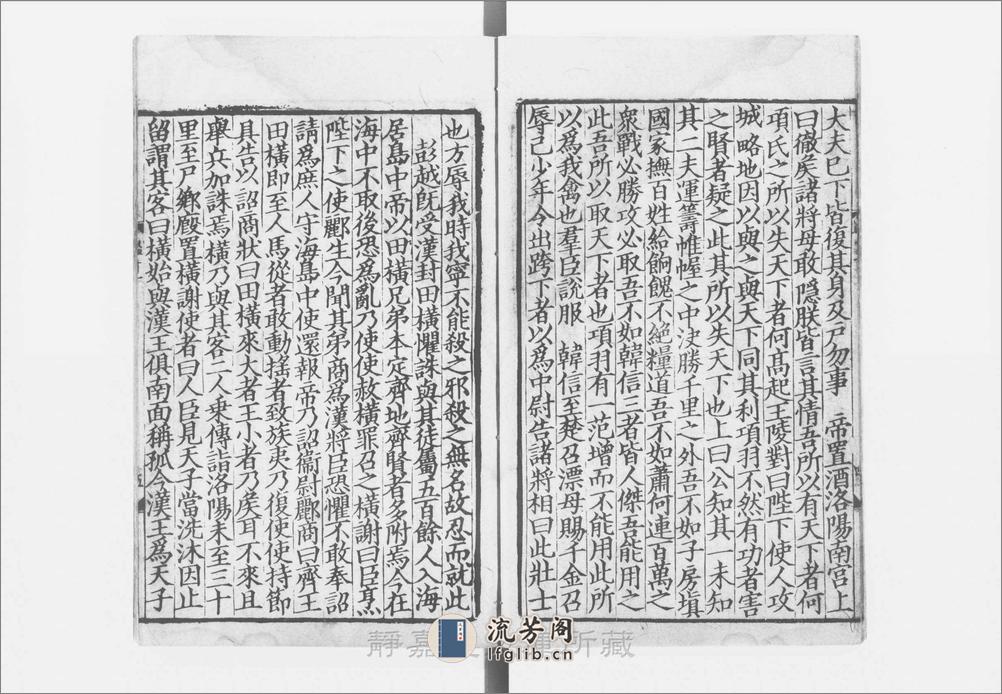 大夫已下皆復其身及戶勿事　帝置酒洛陽南宮上
曰徹矦諸將毋敢隱朕皆言其情吾所以有天下者何
項氏之所以失天下者何髙起王陵對曰陛下使人攻
城略地因以與之與天下同其利項羽不然有功者害
之賢者疑之此其所以失天下也上曰公知其一未知
其二夫運籌帷幄之中決勝千里之外吾不如子房塡
國家撫百姓給餉餽不絕糧道吾不如蕭何連百萬之
衆戰必勝攻必取吾不如韓信三者皆人傑吾能用之
此吾所以取天下者也項羽有一范增而不能用此所
以爲我禽也羣臣說服　韓信至楚召漂母賜千金召
辱己少年令出跨下者以爲中尉告諸將相曰此壯士
也方辱我時我寧不能殺之邪殺之無名故忍而就此
彭越旣受漢封田橫懼誅與其徒屬五百餘人入海
居島中帝以田橫兄弟本定齊地齊賢者多附焉今在
海中不取後恐爲亂乃使使赦橫罪召之橫謝曰臣烹
陛下之使酈生今聞其弟商爲漢將臣恐懼不敢奉詔
請爲庶人守海島中使還報帝乃詔衞尉酈商曰齊王
田橫即至人馬從者敢動搖者致族夷乃復使使持節
具告以詔商狀曰田橫來大者王小者乃矦耳不來且
舉兵加誅焉橫乃與其客二人乘傳詣洛陽未至三十
里至尸鄉廏置橫謝使者曰人臣見天子當洗沐因止
留謂其客曰橫始與漢王俱南面稱孤今漢王爲天子
流芳阁
lfglib.cn
靜嘉
所藏